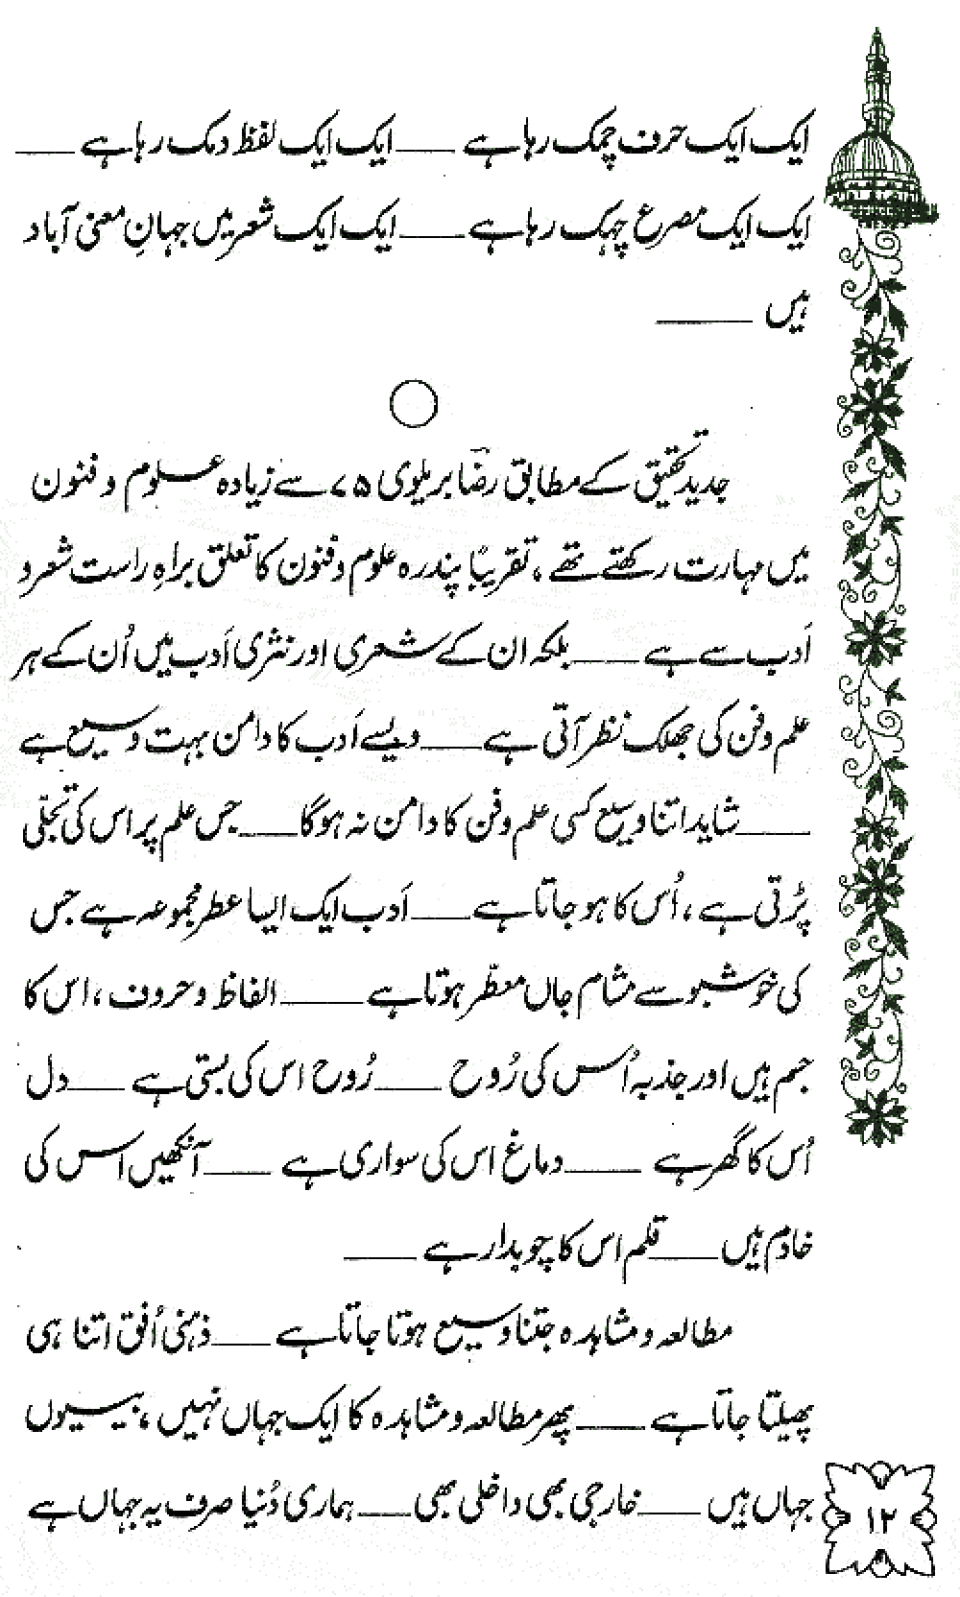 ایک ایک حرف چمک رہا ہے ___ ایک ایک لفظ دمک رہا ہے ___
ایک ایک مصرع چہک رہا ہے ___ ایک ایک شعر میں جہانِ معنی آباد
ہیں ___
جدید تحقیق کے مطابق رضاؔ بریلوی ۷۵ سے زیادہ علوم و فنون
میں مہارت رکھتے تھے ، تقریباً پندرہ علوم و فنون کا تعلق براہِ راست شعر و
اَدب سے ہے ___ بلکہ ان کے شعری اور نثری اَدب میں اُن کے ہر
علم و فن کی جھلک نظر آتی ہے ___ ویسے اَدب کا دامن بہت وسیع ہے
___ شاید اتنا وسیع کسی علم و فن کا دامن نہ ہوگا ___ جس علم پر اس کی تجلّی
پڑتی ہے ، اُس کا ہو جاتا ہے ___ اَدب ایک ایسا عطرِ مجموعہ ہے جس
کی خوشبو سے مشام جاں معطّر ہوتا ہے ___ الفاظ و حروف ، اس کا
جسم ہیں اور جذبہ اُس کی رُوح ___ رُوح اس کی بستی ہے ___ دل
اُس کا گھر ہے ___ دماغ اس کی سواری ہے ___ آنکھیں اس کی
خادم ہیں ___ قلم اس کا چوبدار ہے ___
مطالعہ و مشاہدہ جتنا وسیع ہوتا جاتا ہے ___ ذہنی اُفق اتنا ہی
پھیلتا جاتا ہے ___ پھر مطالعہ و مشاہدہ کا ایک جہاں نہیں ، بیسیوں
جہاں ہیں ___ خارجی بھی داخلی بھی ___ ہماری دُنیا صرف یہ جہاں ہے
۱۲